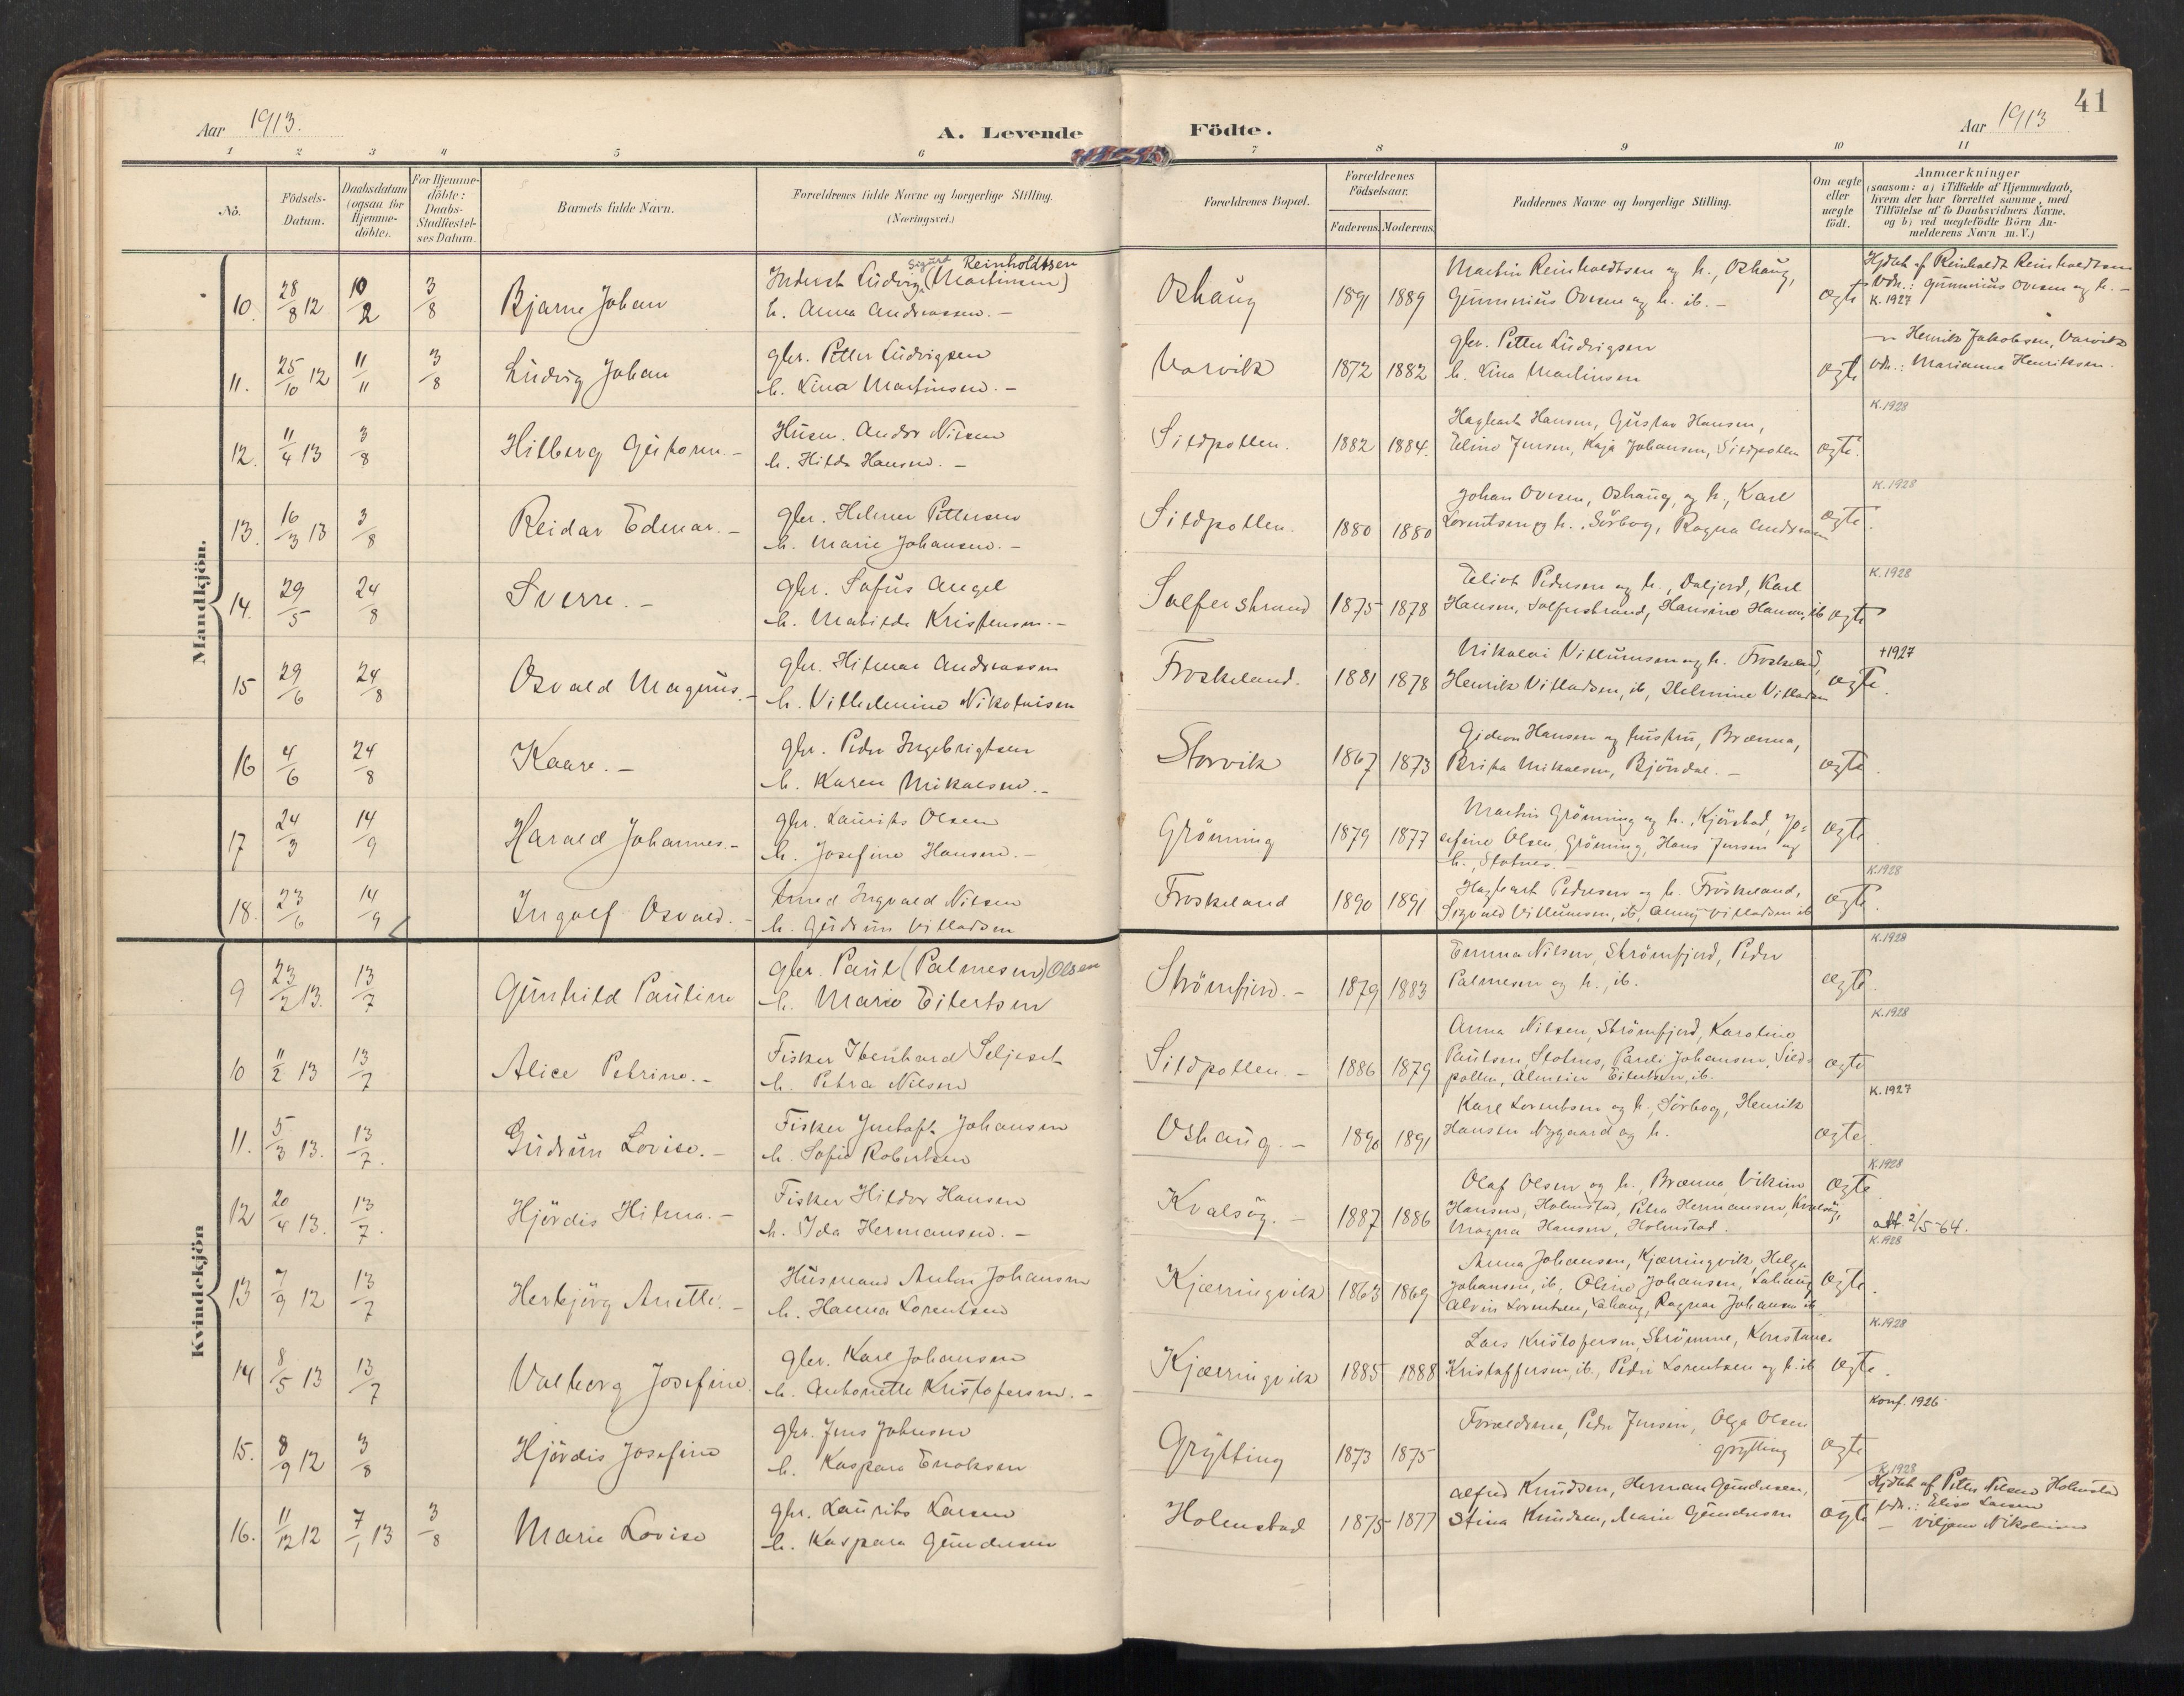 41
Aar 1913.
A. Levende Födte.
Aar 1913
1 2 3 4 5 6 7 8 9 10 11
No.
Födsels-
Datum.
Daabsdatum
(ogsaa for
Hjemme-
döbte).
For Hjemme-
döbte:
Daabs-
Stadfæstel-
ses Datum.
Barnets fulde Navn.
Forældrenes fulde Navne og borgerlige Stilling.
(Næringsvei.)
Forældrenes Bopæl.
Forældrenes
Födselsaar.
Faderens. Moderens.
Faddernes Navne og borgerlige Stilling.
Om ægte
eller
uægte
födt.
Anmærkninger
(saasom: a) i Tilfælde af Hjemmedaab,
hvem der har forrettet samme, med
Tilföielse af to Daabsvidners Navne,
og b) ved uægtefödte Börn An-
melderens Navn m. V.)
Mandkjön.
10. 28/8 12 10/2 3/8 Bjarne Johan
Sigurd Reinholdtsen
Inderst Ludvig (Martinsen)
h. Anna Andreassen. -
Oshaug 1891 1889
Martin Reinholdtsen og h., Oshaug,
Gunnerius Ovesen og h. ib. -
ægte
Hjdbt af Reinholdt Reinholdtsen
Vdn.: Gunnerius Ovesen og h. -
K. 1927
11. 25/10 12 11/11 3/8 Ludvig Johan
gbr. Petter Ludvigsen
h. Lina Martinsen. -
Vorvik 1872 1882
gbr. Petter Ludvigsen
h. Lina Martinsen
ægte
Henrik Jakobsen, Vorvik
Vdn.: Marianne Henriksen.
12. 11/4 13 3/8 Hilberg Gutorm. -
Husm. Andor Nilsen
h. Hilda Hansen. -
Sildpollen. 1882 1884.
Hagbart Hansen, Gustav Hansen,
Eline Jensen, Kaja Johansen, Sildpollen
ægte.
K. 1928
13. 16/3 13 3/8 Reidar Edmar. -
gbr. Helmer Pettersen
h. Marie Johansen. -
Sildpollen. 1880 1880
Johan Ovesen, Oshaug, og h., Karl
Lorentsen og h., Sörbog, Ragna Andreasen
ægte.
K. 1928
14. 29/5 24/8 Sverre. -
gbr. Sofus Angel
h. Matilde Kristensen. -
Solferstrand 1875 1878
Eliot Pedersen og h., Daljord, Karl
Hansen, Solferstrand, Hansine Hansen, ib
ægte
K. 1928
15 29/6 24/8 Osvald Magnus. -
gbr. Hilmar Andreassen
h. Vilhelmine Nikolaisen
Froskeland. 1881 1878
Nikolai Villumsen og h. Froskeland,
Henrik Villadsen, ib, Helmine Villadsen
ægte.
+1927
16 4/6 24/8 Kaare. -
gbr. Peder Ingebrigtsen
h. Karen Mikalsen. -
Storvik 1867 1873
Gideon Hansen og hustru, Brænna,
Brita Mikalsen, Bjöndal. -
ægte.
17 24/3 14/9 Harald Johannes. -
gbr. Laurits Olsen
h. Josefine Hansen. -
Grönning 1879 1877
Martin Grönning og h., Kjörstad, Jo-
sefine Olsen, Grönning, Hans Jensen og
h., Stotnes.
ægte.
18. 23/6 14/9 Ingolf Osvald. -
Smed Ingvald Nilsen
h. Gudrun Villadsen
Froskeland 1890 1891
Hagbart Pedersen og h. Froskeland,
Sigvald Villumsen, ib, Anny Villadsen ib
ægte.
K. 1928
Kvindekjön
9 23/2 13. 13/7 Gunhild Pauline
gbr. Paul (Palmesen) Olsen
h. Marie Eilertsen
Strömfjord. - 1879 1883
Emma Nilsen, Strömfjord, Peder
Palmesen og h., ib.
ægte.
K. 1928
10 11/2 13 13/7 Alice Petrine. -
Fisker Ibenhard Seljeset
h. Petra Nilsen
Sildpollen. - 1886 1879
Anna Nilsen, Strömfjord, Karoline
Paulsen Stotnes, Pareli Johansen, Sild-
pollen, Eilertsen, ib.
ægte
K. 1928
11. 5/3 13. 13/7. Gudrun Lovise. -
Fisker Johansen
h. Sofie Robertsen
Oshaug. - 1890 1891
Karl Lorentsen og h., Sörbog, Henrik
Hansen Nygaard og h.
ægte.
K. 1927
12 20/4 13. 13/7. Hjördis Hilma. -
Fisker Hildor Hansen
h. Ida Hermansen. -
Kvalsög. - 1887 1886
Olaf Olsen og h., Brænna, Vikine
Hansen, Holmstad, Petra Hermansen, Kvalsög,
Magna Hansen, Holmstad.
ægte.
K. 1928
att. 2/5-64.
13 7/9 12 13/7 Herbjörg Anette. -
Husmand Anton Johansen
h. Hanna Lorentsen
Kjærringvik 1863 1869
Anna Johansen, Kjærringvik, Helga
Johansen, ib, Oline Johansen, Lahaug,
Alvin Lorentsen, Lahaug, Ragnar Johansen ib.
ægte.
K. 1928
14 8/5 13 13/7 Valborg Josefine.
gbr. Karl Johansen
h. Antonette Kristofersen. -
Kjærringvik 1885 1888
Lars Kristofersen, Strömme, Konstance
Kristoffersen, ib., Peder Lorentsen og h. ib
ægte.
K. 1928
15. 8/9 12 3/8 Hjördis Josefine
gbr. Jens Johnsen
h. Kaspara Enoksen
Grytting 1873 1875
Forældrene, Peder Jensen, Olga Olsen
Grytting
ægte
Konf. 1926
16. 11/12 12 7/1 13 3/8 Marie Lovise
gbr. Laurits Larsen
h. Kaspara Gundersen
Holmstad 1875 1877
Alfred Knudsen, Herman Gundersen,
Stina Knudsen, Marie Gundersen
ægte
K. 1928
Hjdbt af Petter Nilsen Holmstad
Vdn.: Elise Larsen
- Viljam Nikolaisen